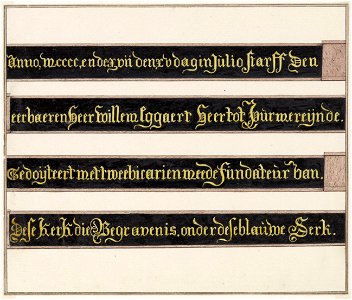 Anno, M, CCCC, ende xvii den xv dag in Julio starff Den
eerbaeren Heer Willem Eggaert Heer tot Pürmereijnde.
Gedoijteert met twee bicarien meede fundateur van.
Dese Kerk die Begravenis, onder dese blaüwe Serk.